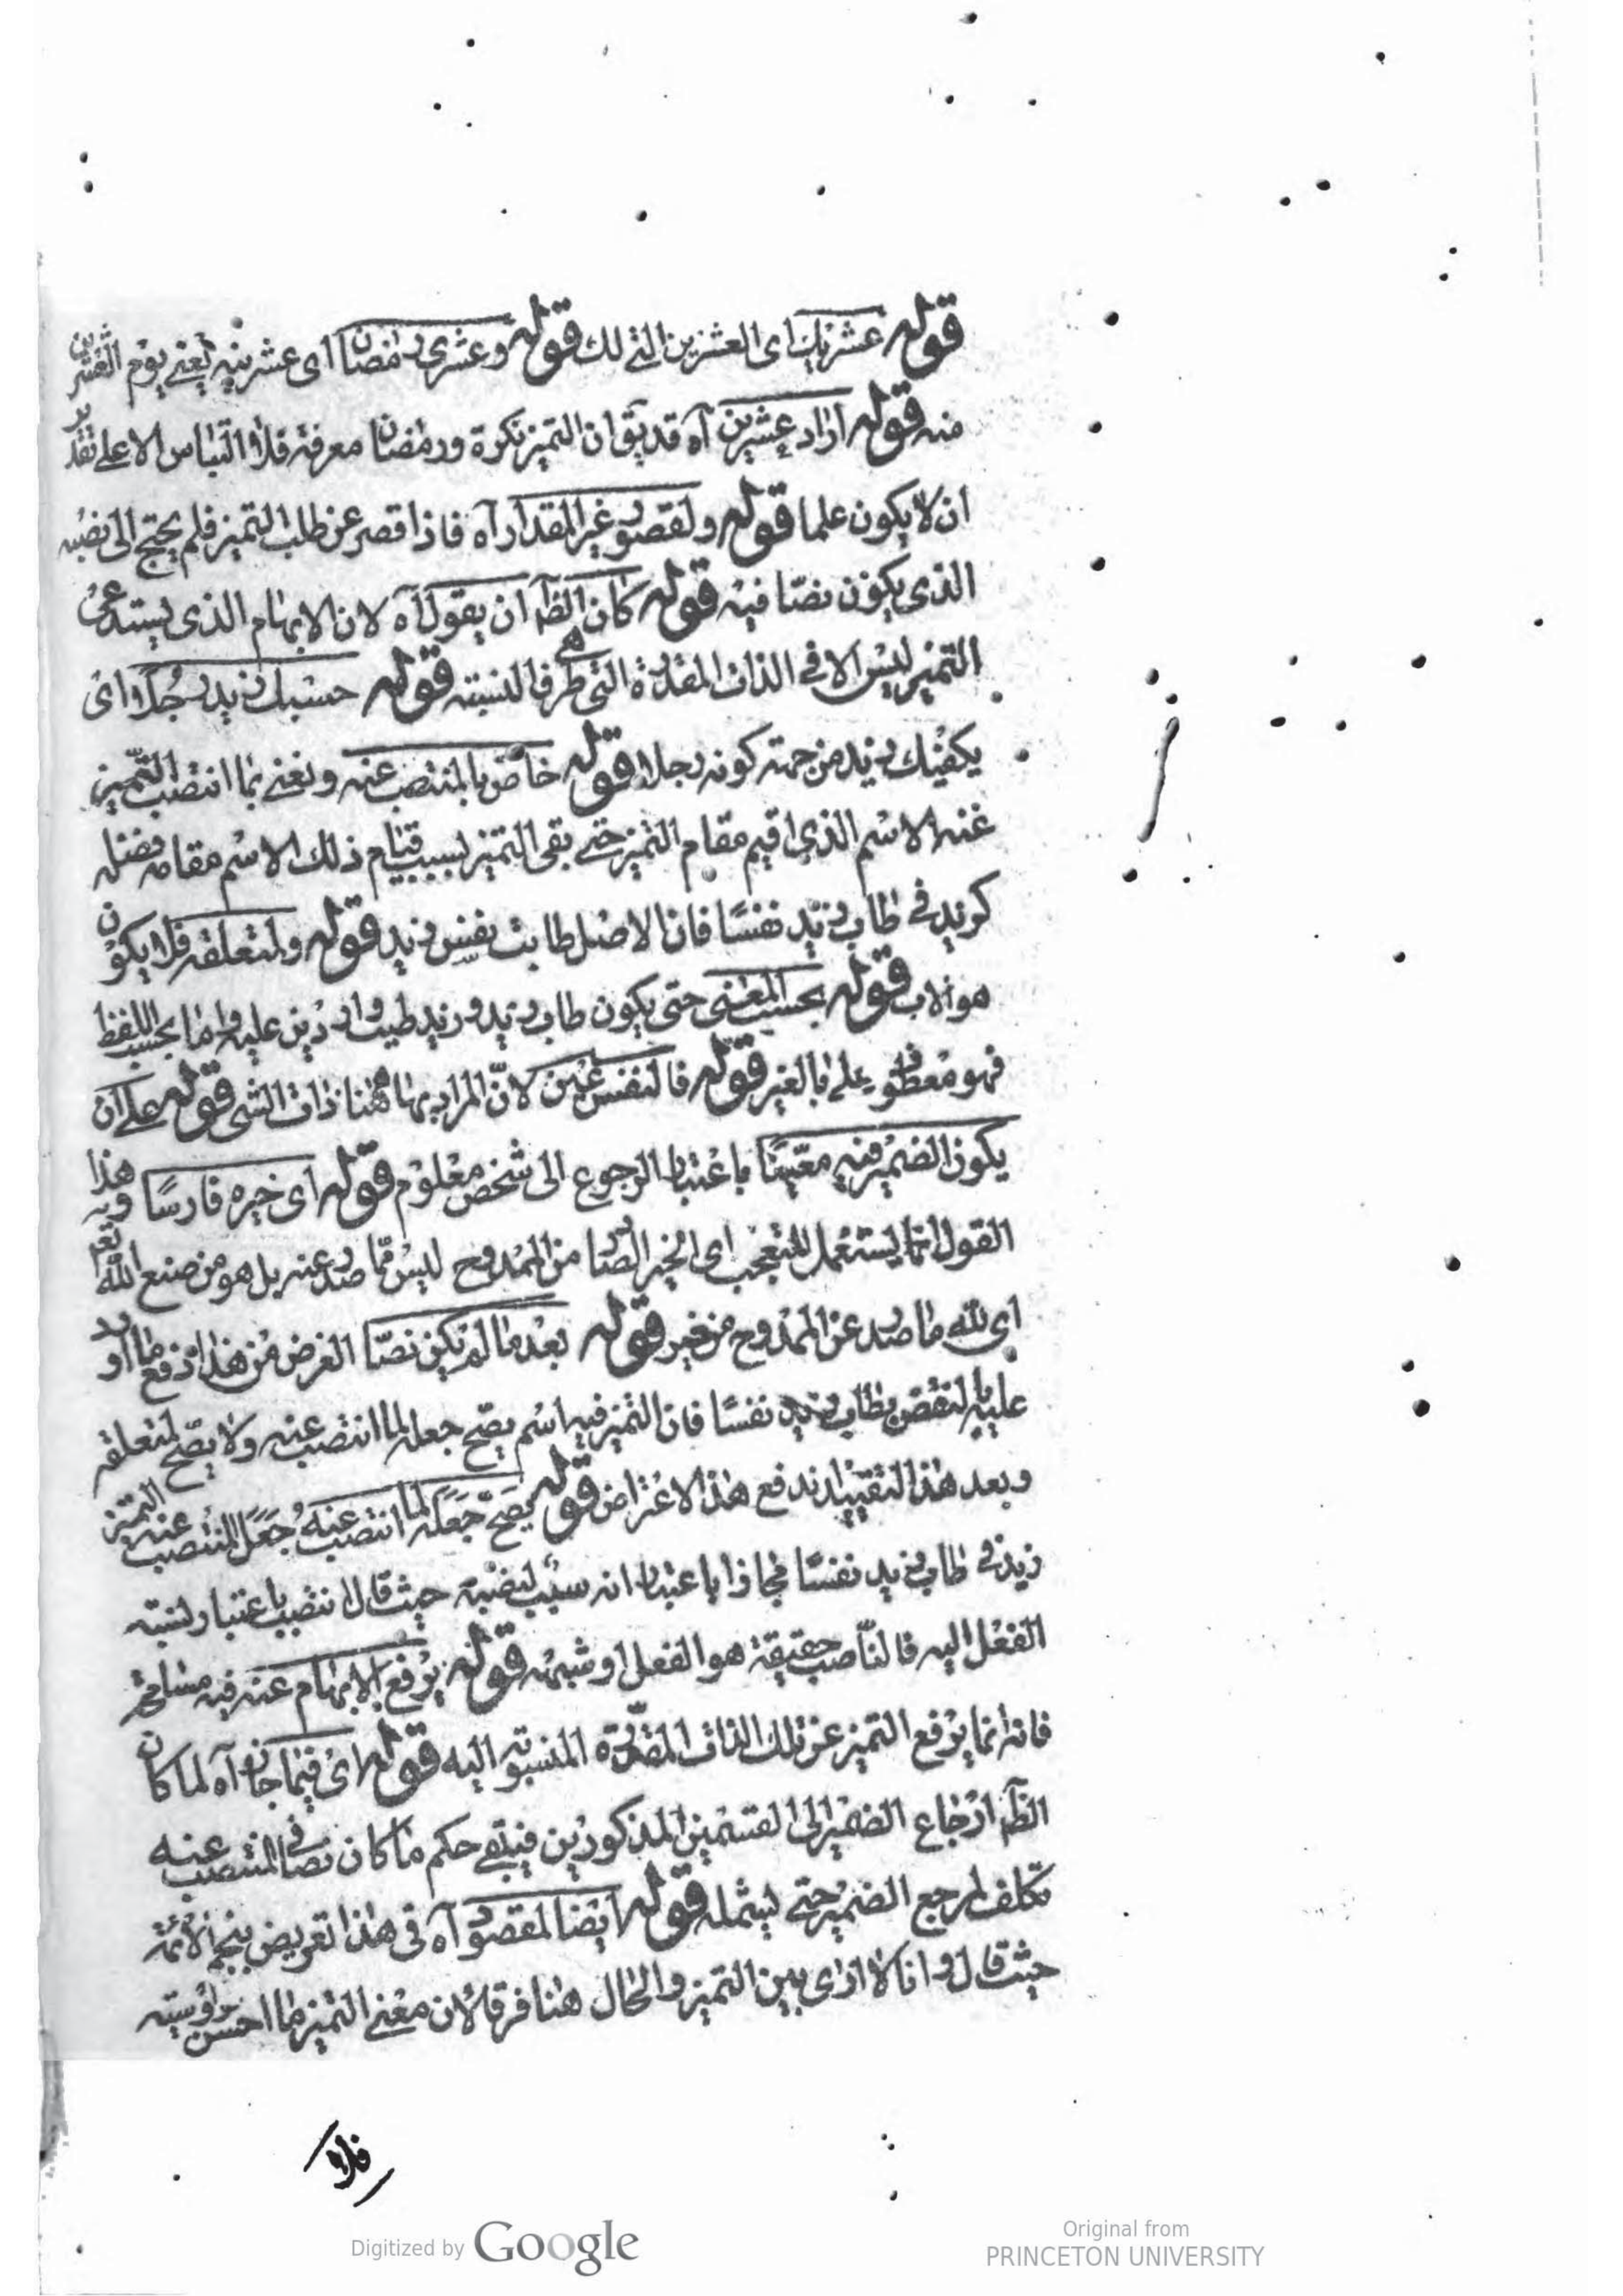 قوله عشريك اى العشرين التى لك قوله وعشرى رمضان اى عشرينه يعنى يوم العشرين
منه قوله اراد عشرين آه قد يق ان التميز نكرة ورمضان معرفة فلا التباس الا على تقدير
ان لا يكون علما قوله ولقصور غير المقدار آه فاذا قصر عن طلب التميز فلم يحتج الى نصبه
الذى يكون نصا فيه قوله كان الظ ان يقول آه لان الابهام الذى يستدعى
التميز ليس الا فى الذات المقدرة التى هى طرف النسبته قوله حسبك زيد رجلا اى
يكفيك زيد من جهته كونه رجلا قوله خاص بالمنتصب عنه ونعنى بما انتصب التميز
عنه الاسم الذى اقيم مقام التميز حتى بقى التميز بسبب قيام ذلك الاسم مقامه فضله
كزيد فى طاب زيد نفسًا فان الاصل طابت نفس زيد قوله ولمتعلقه فلا يكون
هو الاب قوله بحسب المعنى حتى يكون طاب زيد وزيد طيب واردين عليه واما بحسب اللفظ
فهو معطوف على بالغير قوله فالنفس عين لانّ المراد بها ههنا ذات الشى قوله على ان
يكون الضمير فيه معينًا باعتبار الرجوع الى شخص معلوم قوله اى خيره فارسًا وهذا
القول انما يستعمل للتعجب اى الخير الصادر من الممدوح ليس مما صدر عنه بل هو من صنع الله تع
اى لله ما صدر عن الممدوح من خير قوله بعد ما لم يكن نصّا الغرض من هذا دفع ما اورد
عليه بالنقض بطاب زيد نفسًا فان التميز فيه اسم يصح جعله لما انتصب عنه ولا يصح لمتعلقه
وبعد هذا التقييد اندفع هذا الاعتراض قوله يصح جعله لما انتصب عنه جعل المنتصب عنه التميز
زيد فى طاب زيد نفسًا مجازا باعتبار انه سبب لنصبه حيث قال انتصب باعتبار نسبته
الفعل اليه فالناصب حقيقة هو الفعل او شبهه قوله يرفع الابهام عنه فيه مسامحة
فانه انما يرفع التميز عن تلك الذات المقدرة المنسوبة اليه قوله اى فيما جاز آه لما كان
الظ ارجاع الضمير الى القسمين المذكورين فيبقى حكم ما كان نصا فى المنتصب عنه
تكلف لمرجع الضمير حتى يشمله قوله ايضا المقصود آه فى هذا تعريض بنجم الائمة
حيث قال وانا لا ارى بين التميز والحال هنا فرقا لان معنى التميز ما احسن فروسيته
فلا
Digitized by Google
Original from
PRINCETON UNIVERSITY